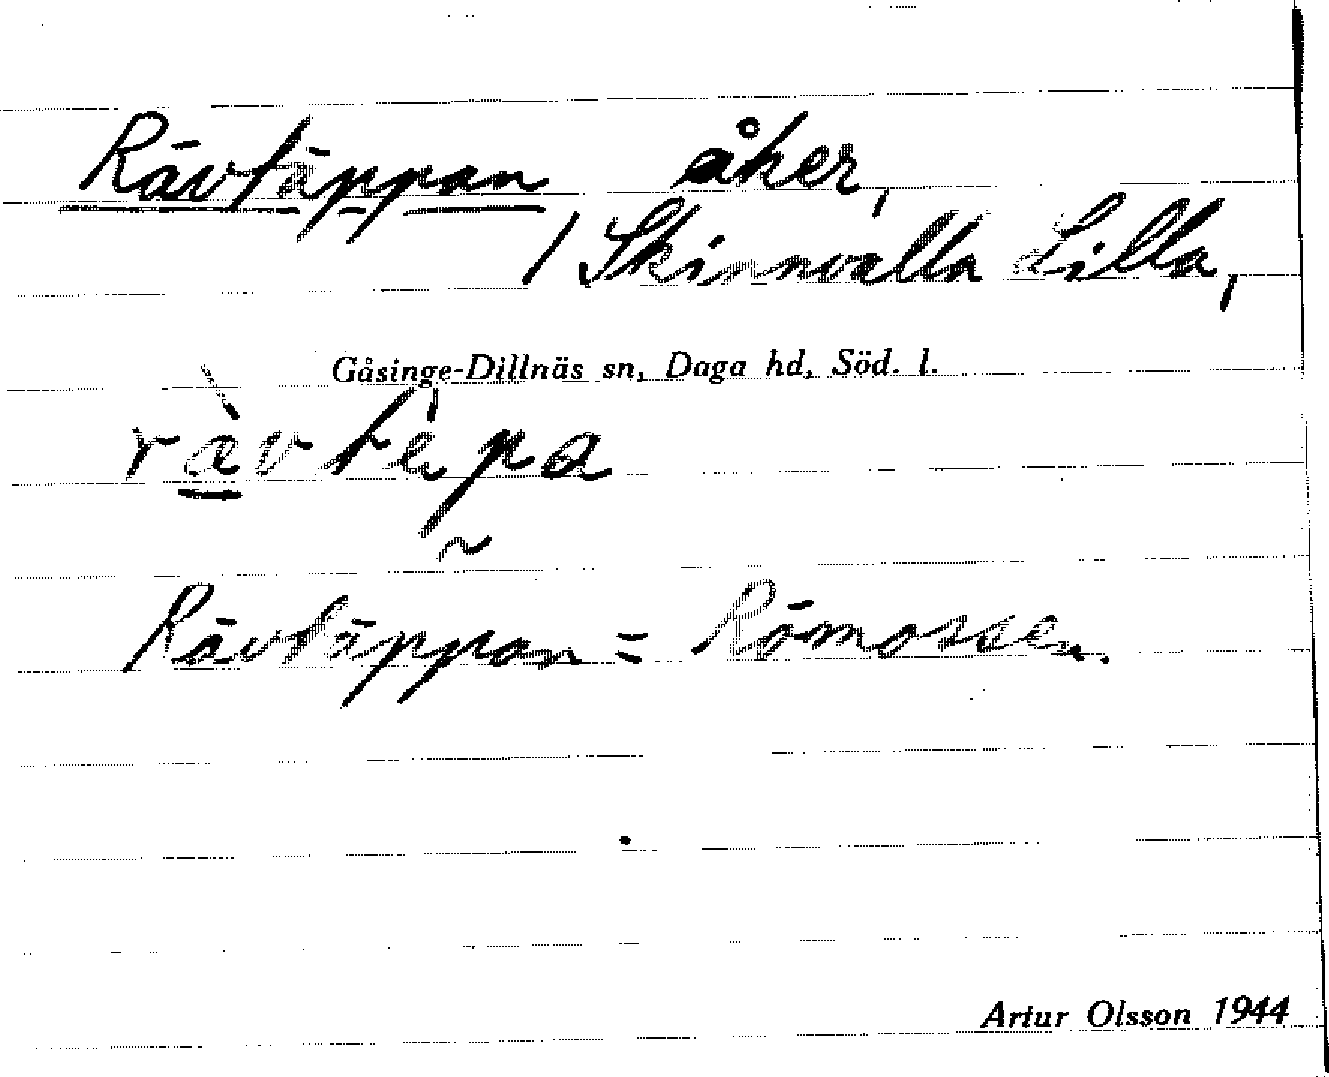 Rävtäppan åker,
/ Skinnvalla Lilla,
Gåsinge-Dillnäs sn, Daga hd, Söd. l.
rævtepa
Rävtäppan = Römossen.
Artur Olsson 1944